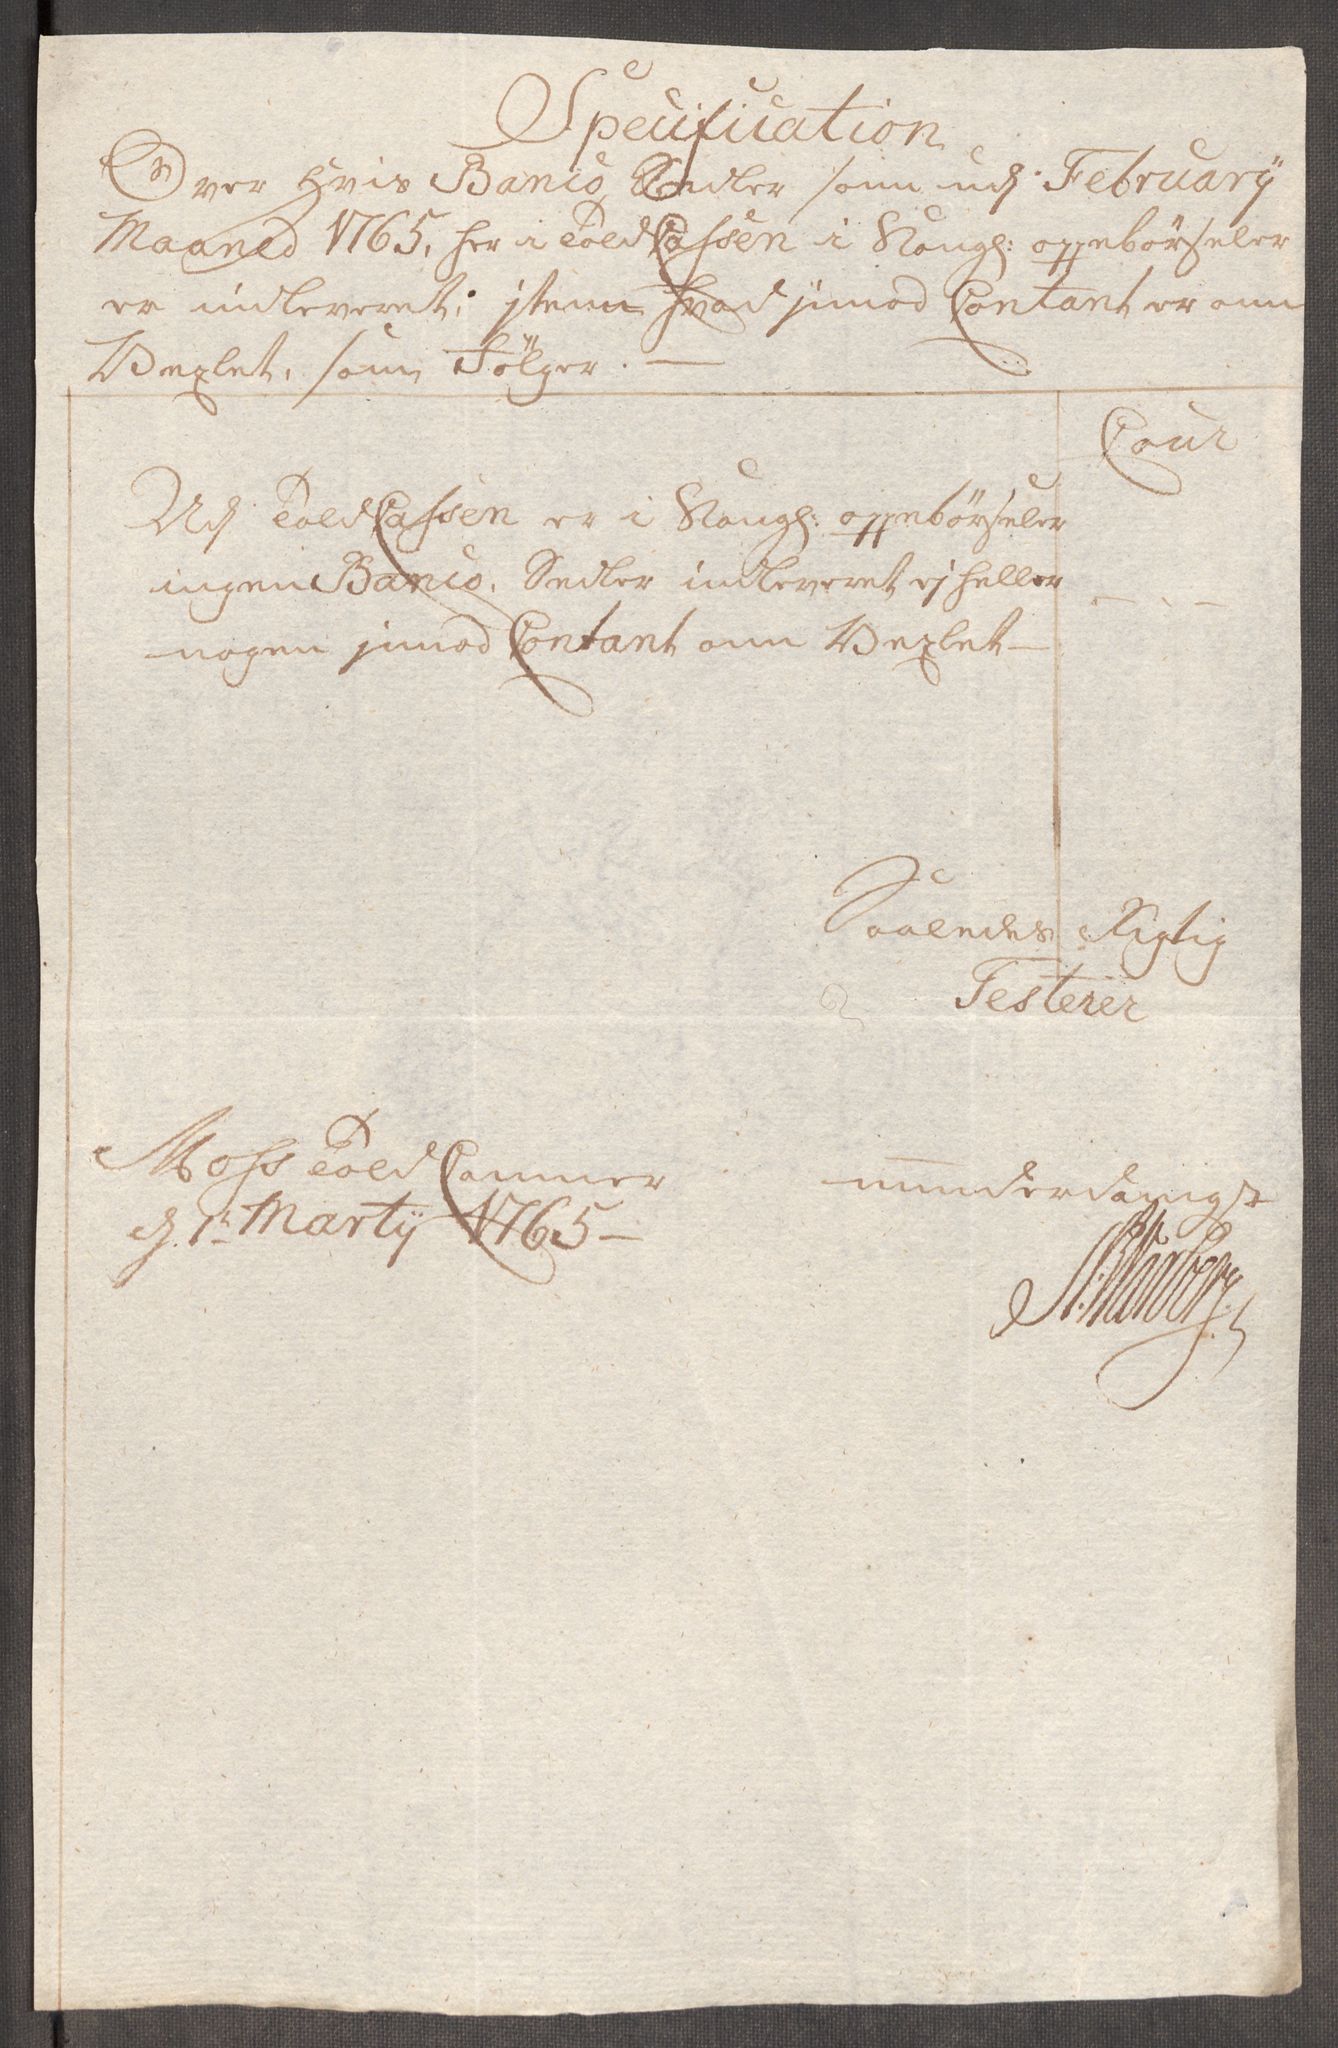 Specification
Over Hvis Banco Sedler som udj February
Maaned 1765, her i Told Cassen i Kongl: oppebörseler
er indleveret; jtem hvad jmod Contant er om
Vexlet, som Fölger. —
Cour
Udj Told Cassen er i Kongl: oppebörseler
ingen Banco, Sedler indleveret ej heller
nogen jmod Contant om Vexlet —
Saaledes Rigtig
Testerer
Moss Told Cammer
underdanigst
d. 1t Martij 1765 —